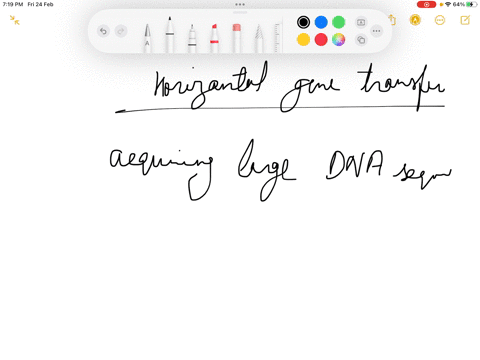 7:19 PM Fri 24 Feb
64%
Horizontal gene transfer
acquiring large DNA